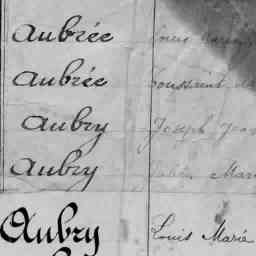 Aubrée Louis
Aubrée Toussaint
Aubry Joseph Jean
Aubry Marie
Aubry Louis Marie